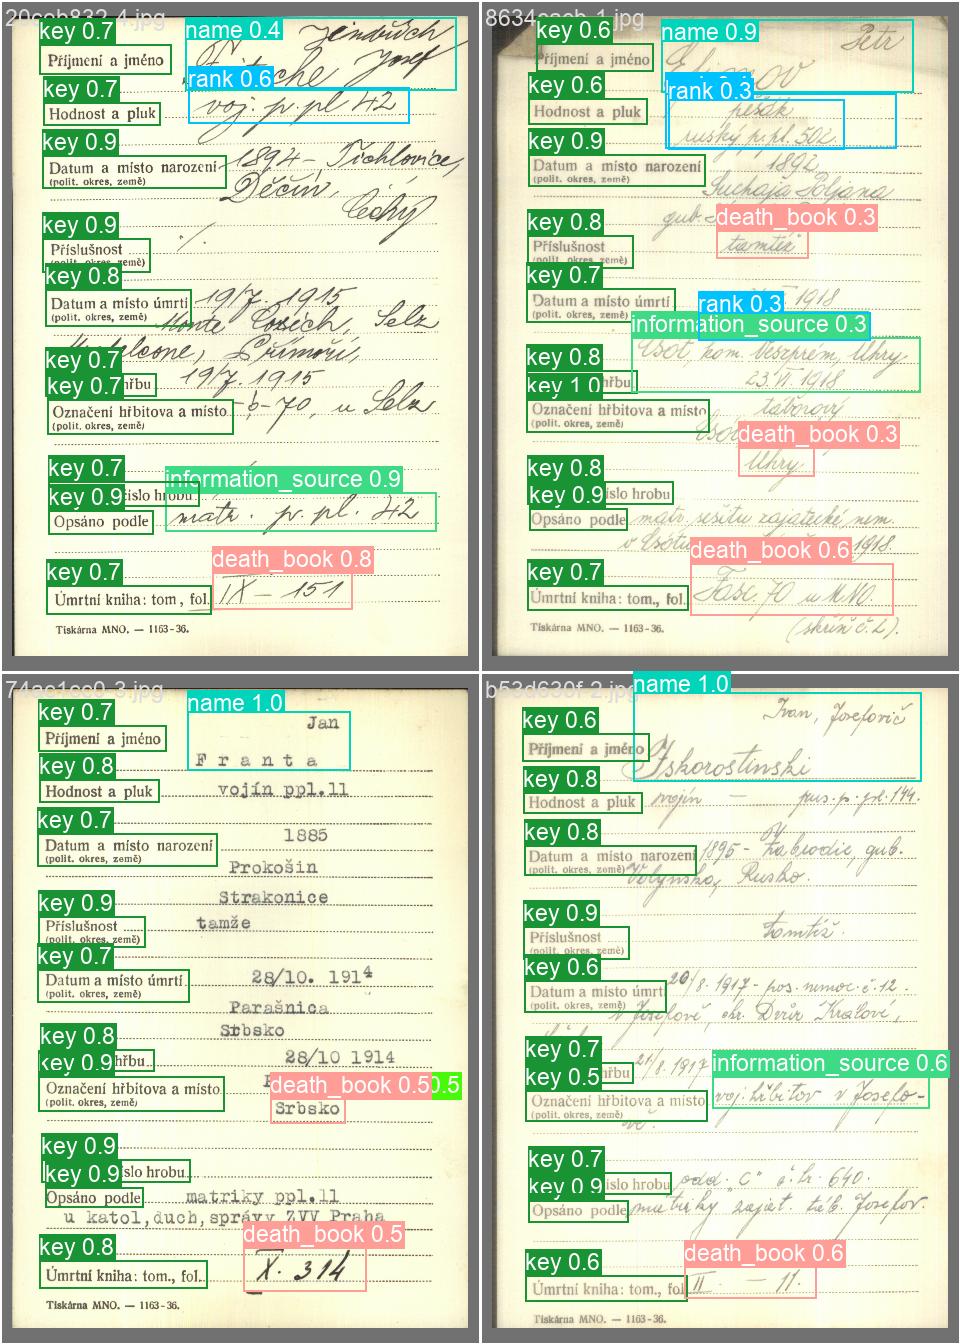 20eeb832-4.jpg
key 0.7
name 0.4
Jindřich
Příjmení a jméno
Josef
rank 0.6
key 0.7
voj. p. pl 42
Hodnost a pluk
key 0.9
1894 - Tichlovice,
Datum a místo narození
(polit. okres, země)
Děčín,
Čechy
key 0.9
Příslušnost
./.
key 0.8
Datum a místo úmrtí
(polit. okres, země)
19/7. 1915
Monte Cosich, Selz
Přímoří,
key 0.7
19/7. 1915
key 0.7
hřbu
Označení hřbitova a místo
(polit. okres, země)
70, u Selz
key 0.7
information_source 0.9
key 0.9
číslo hrobu
Opsáno podle
matr. p. pl. 42
death_book 0.8
key 0.7
Úmrtní kniha: tom, fol.
IX - 151
Tiskárna MNO. — 1163-36.
key 0.6
name 0.9
Petr
Příjmení a jméno
key 0.6
rank 0.3
Hodnost a pluk
pěšák
ruský p. pl. 502
key 0.9
1892
Datum a místo narození
(polit. okres, země)
Suchaja Poljana
gub.
key 0.8
death_book 0.3
Příslušnost
(polit. okres, země)
tamtéž
key 0.7
rank 0.3
Datum a místo úmrtí
(polit. okres, země)
1918
information_source 0.3
key 0.8
Csót, kom. Veszprém, Uhry
hřbu
23. VI. 1918
key 1.0
Označení hřbitova a místo
(polit. okres, země)
táborový
death_book 0.3
Uhry
key 0.8
key 0.9
číslo hrobu
Opsáno podle
matr. sešitu zajatecké nem.
v Csótu
1918.
death_book 0.6
key 0.7
Úmrtní kniha: tom., fol.
Fasc. 70 u MNO.
(skříň č. 2).
Tiskárna MNO. — 1163-36.
74ae1cc0-3.jpg
key 0.7
name 1.0
Jan
Příjmení a jméno
Franta
key 0.8
Hodnost a pluk
vojín ppl.11
key 0.7
1885
Datum a místo narození
(polit. okres, země)
Prokošin
Strakonice
key 0.9
Příslušnost
(polit. okres, země)
tamže
key 0.7
Datum a místo úmrtí
(polit. okres, země)
28/10. 1914
Parašnica
Srbsko
key 0.8
key 0.9
hřbu..
28/10 1914
Označení hřbitova a místo
(polit. okres, země)
death_book 0.5
0.5
Srbsko
key 0.9
key 0.9
číslo hrobu
Opsáno podle
matriky ppl.11
u katol,duch,správy ZVV Praha
death_book 0.5
key 0.8
Úmrtní kniha: tom., fol.
X. 314
Tiskárna MNO. — 1163-36.
b53d630f-2.jpg
name 1.0
key 0.6
Ivan, Josefovič
Příjmení a jméno
Iskorostinski
key 0.8
Hodnost a pluk
vojín — rus. p. pl. 144.
key 0.8
Datum a místo narození
(polit. okres, země)
1895 - Zabrodie, gub.
Volynska, Rusko.
key 0.9
Příslušnost
(polit. okres, země)
tamtéž.
key 0.6
Datum a místo úmrtí
(polit. okres, země)
20/8. 1917 - pos. nemoc. č. 12.
v Josefově, okr. Dvůr Králové,
key 0.7
hřbu
21/8 1917
information_source 0.6
key 0.5
Označení hřbitova a místo
(polit. okres, země)
voj. hřbitov v Josefo-
vě.
key 0.7
key 0.9
číslo hrobu
odd. "C" č. hr. 640.
Opsáno podle
matriky zajat. táb. Josefov.
key 0.6
death_book 0.6
Úmrtní kniha: tom., fol.
II — 11.
Tiskárna MNO. — 1163-36.